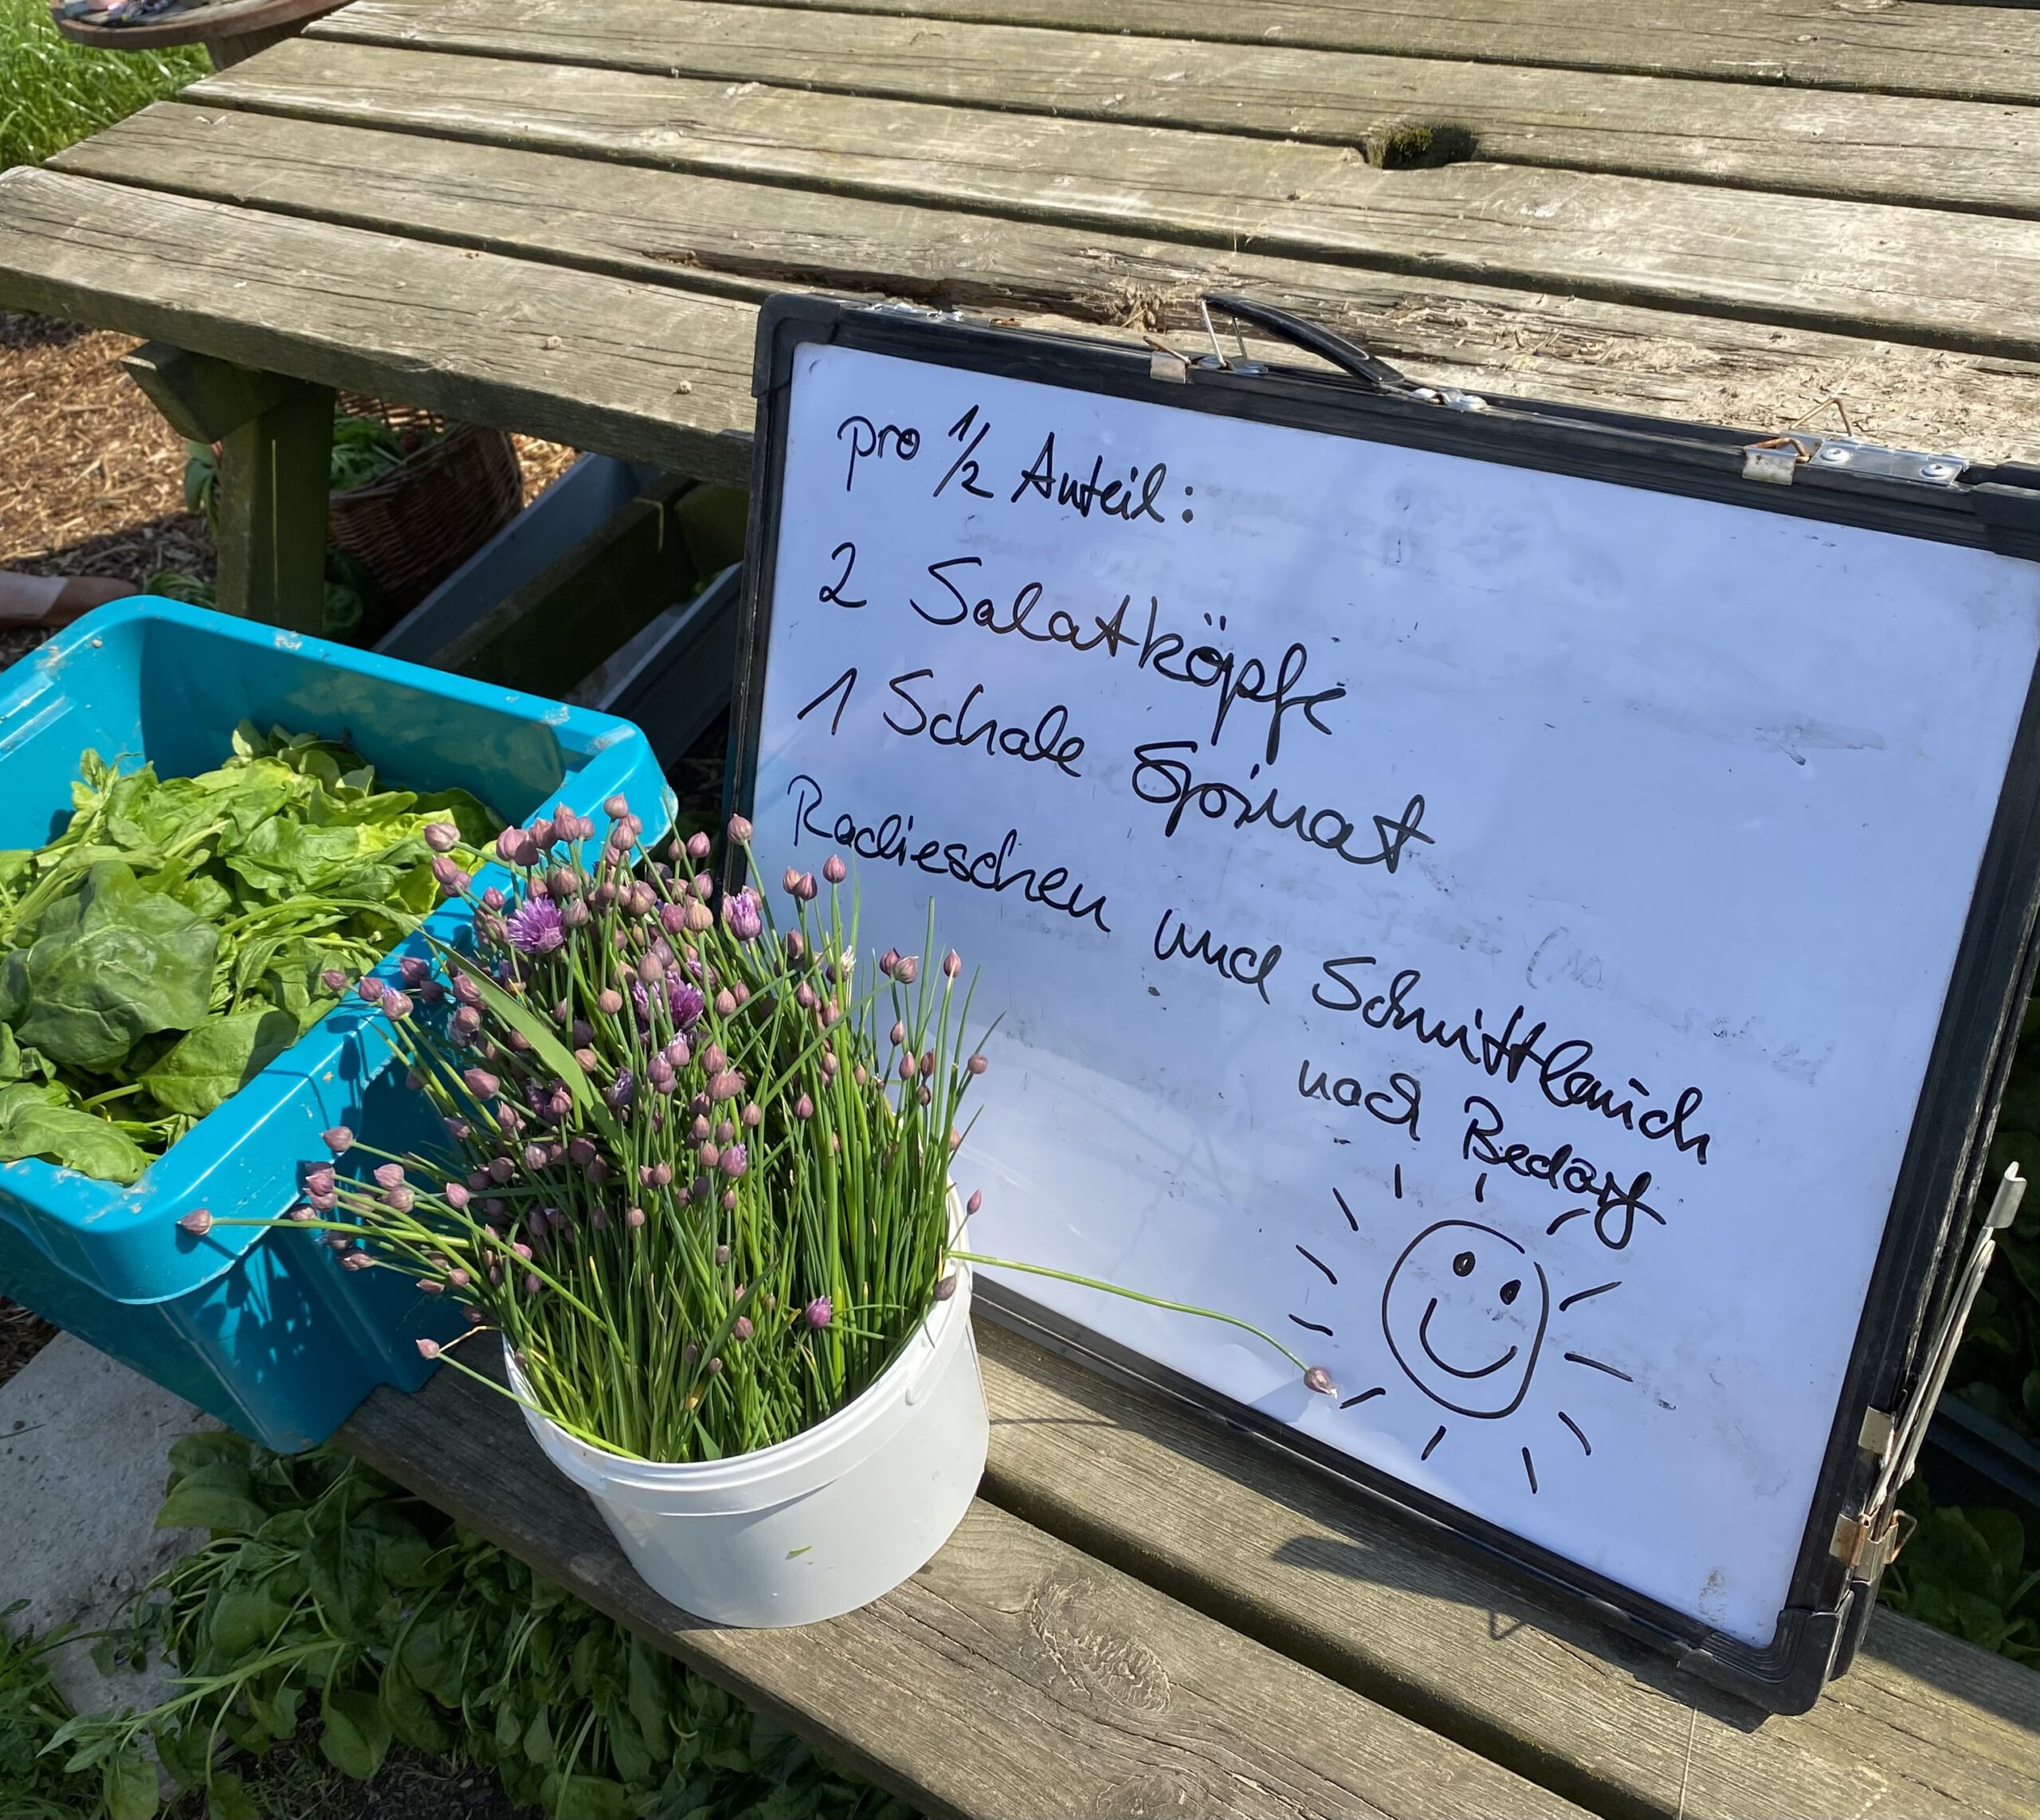 pro 1/2 Anteil:
2 Salatköpfe
1 Schale Spinat
Radieschen und Schnittlauch
nach Bedarf